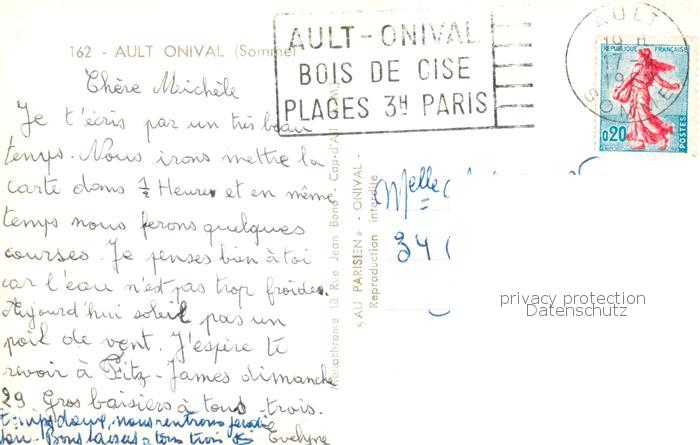 162 - AULT ONIVAL (Somme)
AULT - ONIVAL
BOIS DE CISE
PLAGES 3H PARIS
AULT
17-
19
SOMME
REPUBLIQUE FRANÇAISE
0,20
POSTES
Chère Michèle
Je t'écris par un très beau
temps. Nous irons mettre la
carte dans ½ Heure et en même
temps nous ferons quelques
courses. Je penses bien à toi
car l'eau n'est pas trop froides.
Aujourd'hui soleil pas un
poil de vent. J'espère te
revoir à Fitz-James dimanche
29 Gros baisers à tous trois.
nous rentrons
Bons baisers a tous trois
Evelyne
Monochrome 18 Rue Jean Bono - Cap-d'Ail
"AU PARISIEN" - ONIVAL -
Reproduction interdite
Melle
34
privacy protection
Datenschutz